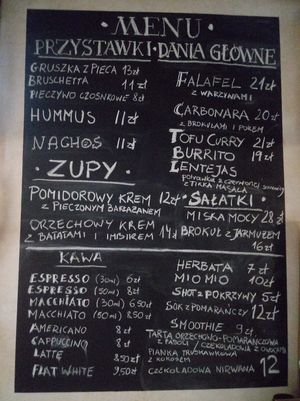 • MENU •
PRZYSTAWKI • DANIA GŁÓWNE
GRUSZKA Z PIECA 13zł
BRUSCHETTA 11 zł
PIECZYWO CZOSNKOWE 8zł
HUMMUS 11zł
NACHOS 11zł
• ZUPY •
POMIDOROWY KREM 12zł
Z PIECZONYM BAKŁAŻANEM
ORZECHOWY KREM
Z BATATAMI I IMBIREM 14zł
FALAFEL 21zł
Z WARZYWAMI
CARBONARA 20 zł
Z BROKUŁAMI I POREM
TOFU CURRY 21zł
BURRITO 19zł
LENTEJAS
potrawka z czerwonej soczewicy
z TIKKA MASALA
• SAŁATKI •
MISKA MOCY 28 zł
BROKUŁ Z JARMUŻEM
16 zł
KAWA
ESPRESSO (30ml) 6zł
ESPRESSO (50ml) 8zł
MACCHIATO (30ml) 6,50zł
MACCHIATO (50ml) 8,50zł
AMERICANO 8zł
CAPPUCCINO 8zł
LATTE 8,50zł
FLAT WHITE 9,50zł
HERBATA 7 zł
MIO MIO 10zł
SHOT Z POKRZYWY 5zł
SOK Z POMARAŃCZY 12zł
SMOOTHIE 9zł
TARTA ORZECHOWO-POMARAŃCZOWA
Z FASOLI / CZEKOLADOWA Z OWOCAMI
PIANKA TRUSKAWKOWA
Z KOKOSEM
CZEKOLADOWA NIRWANA 12